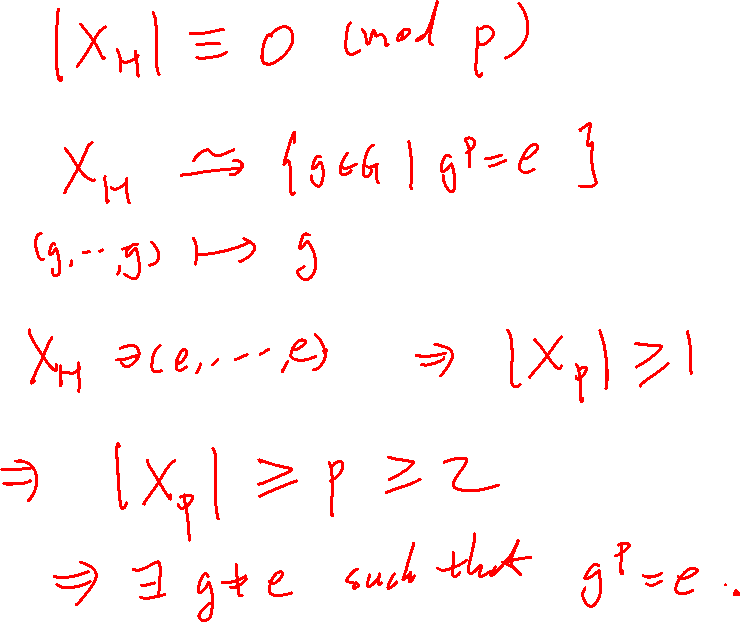 |X_H| ≡ 0 (mod p)
X_H ⥲ {g∈G | g^p = e}
(g,⋯,g) ↦ g
X_H ∋ (e,⋯⋯,e) ⇒ |X_p| ⩾ 1
⇒ |X_p| ⩾ p ⩾ 2
⇒ ∃ g ≠ e such that g^p = e.